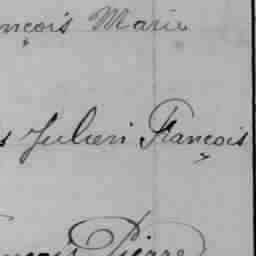 nçois Marie
s Julien François
nçois Pierre